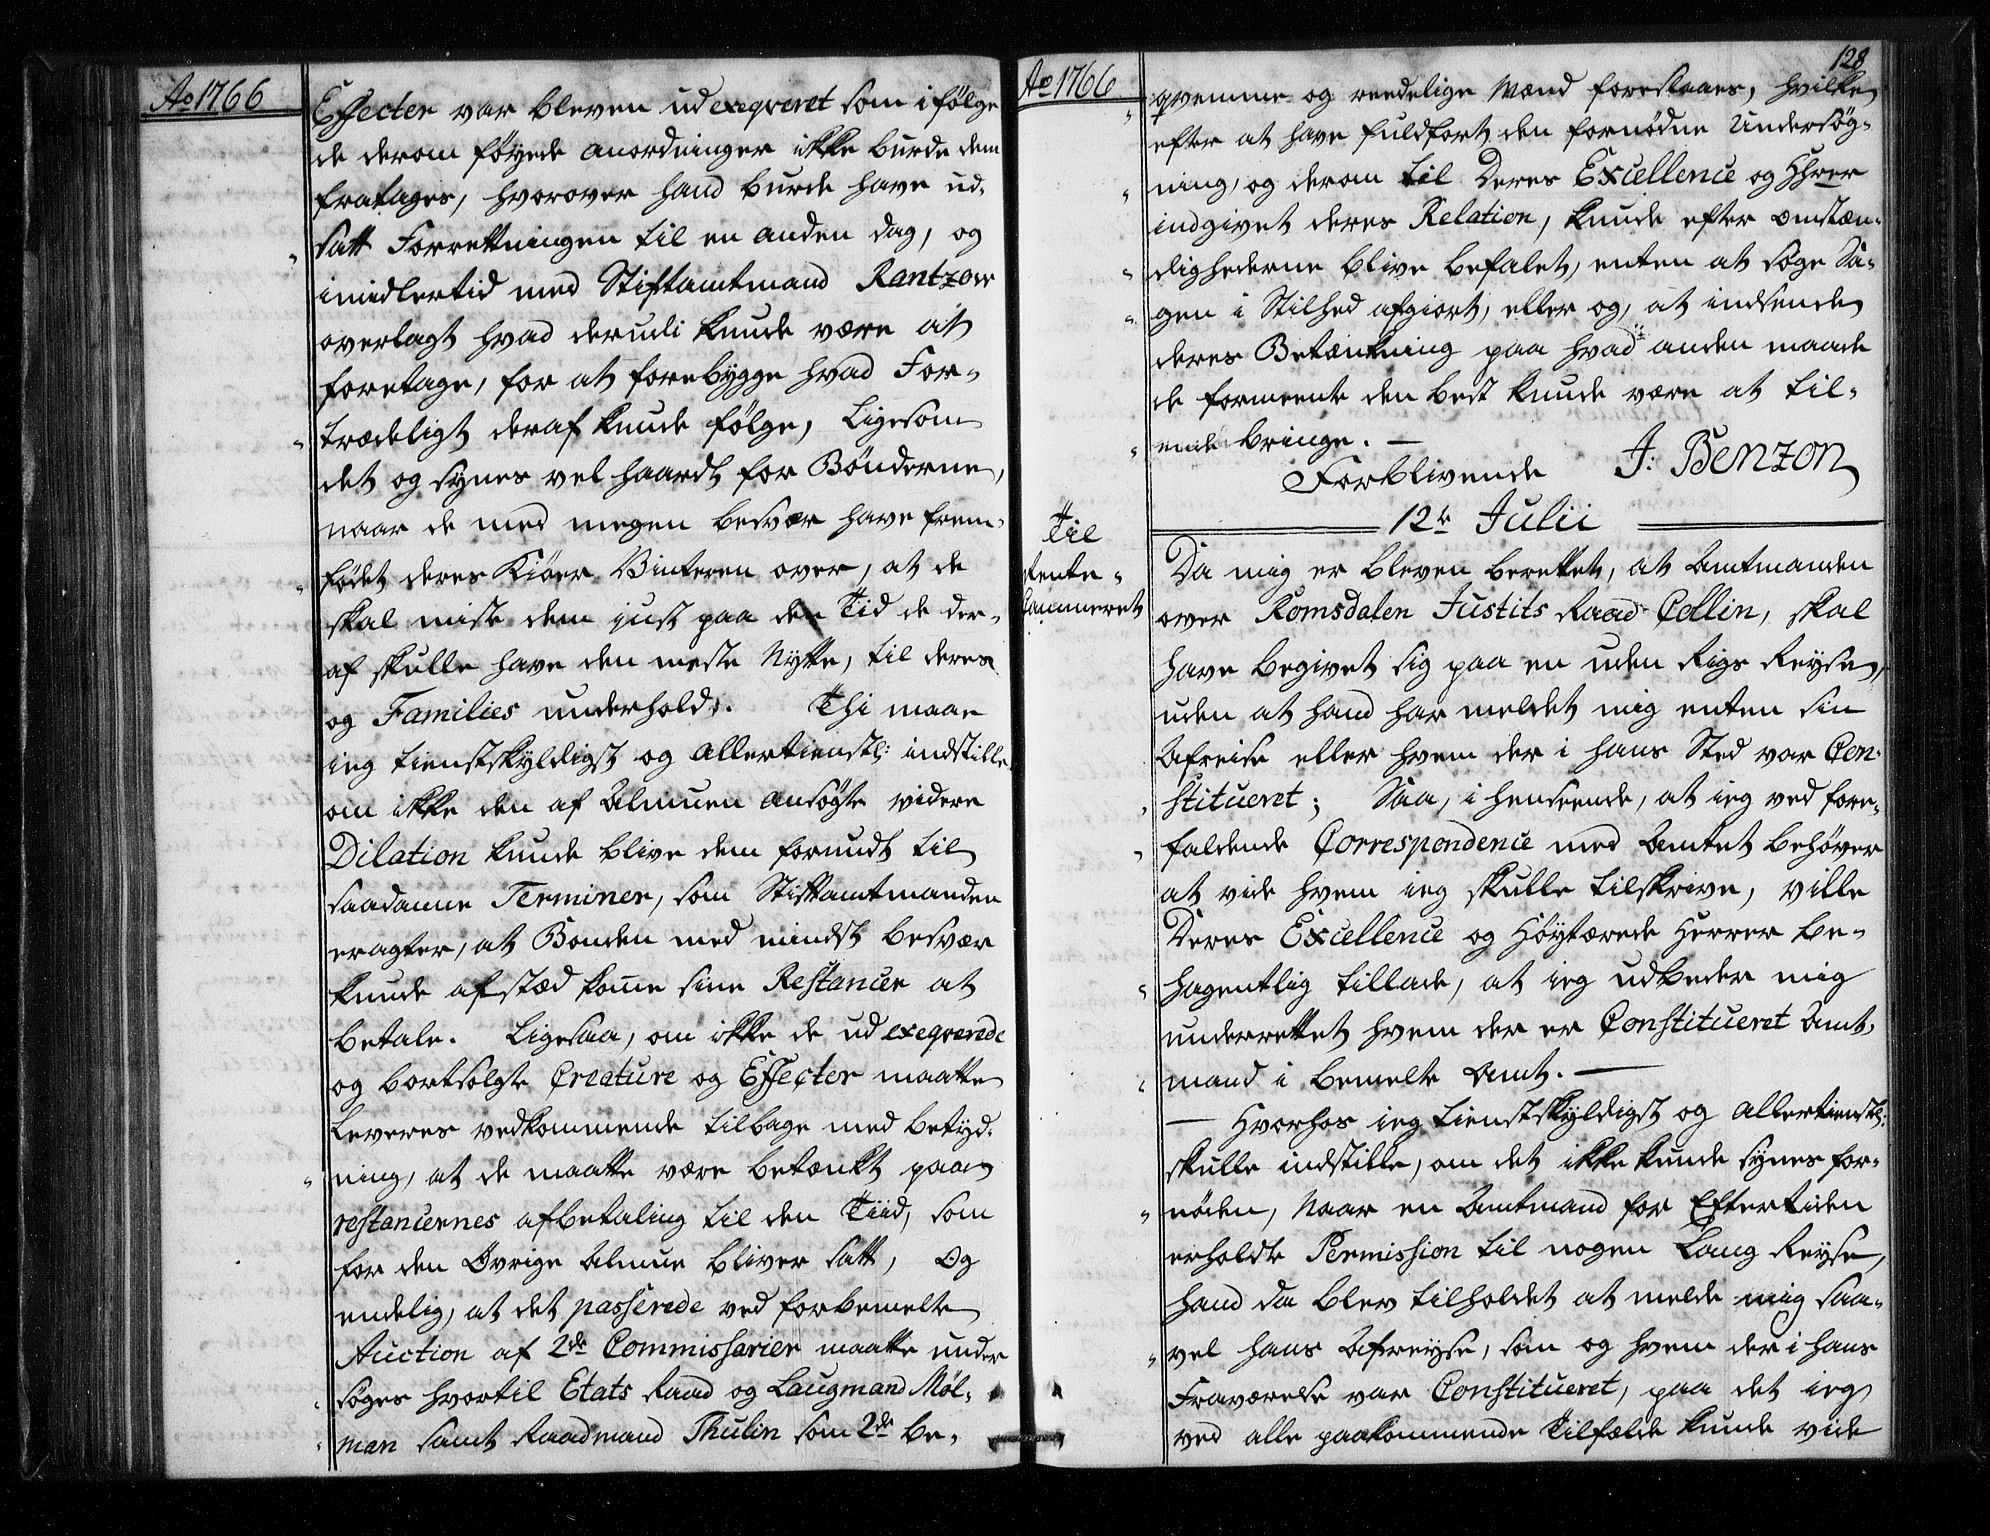 Ao 1766
Effecter var bleven udexeqveret som i følge
de derom føyede anordninger ikke burde dem
fratages, hvorover hand burde have ud-
satt Forrettningen til en anden dag, og
imidlertid med Stiftamtmand Rantzow
overlagt hvad derudi kunde være at
foretage, for at forebygge hvad For-
trædeligt deraf kunde følge, Ligesom
det og synes vel haardt for Bønderne,
naar de med megen besvær have frem-
fødet deres Kiøer Vinteren over, at de
skal miste dem just paa den Tid de der-
af skulle have den meste Nytte, til deres
og Families underhold. Thi maae
ieg tienstskyldigst og allertienstl: indstille
om ikke den af Almuen ansøgte videre
Dilation kunde blive dem forundt til
saadanne Terminer, som Stiftamtmanden
eragter, at Bonden med mindst besvær
kunde afsted kome sine Restancer at
betale. Ligesaa, om ikke de udexeqverede
og bortsolgte Creature og Effecter maatte
Leveres vedkommende tilbage med betyd-
ning, at de maatte være betænkt paa
restancernes afbetaling til den Tiid, som
for den Øvrige Almue bliver satt, Og
endelig, at det passerede ved forbemelte
Auction af 2de Commissarier maatte under
søges hvortil Etats Raad og Laugmand Møl-
man samt Raadmand Thulin som 2de be-
128
Ao 1766
qvemme og reedelige Mænd foreslaaes, hvilke
efter at have fuldført den fornødne Undersøg-
ning, og derom til Deres Excellence og HHrer
indgivet deres Relation, kunde efter omstæn-
dighederne blive befalet, enten at søge Sa-
gen i Stilhed afgiort, eller og, at indsende
deres Betænkning paa hvad anden maade
de formeente den best kunde være at til-
ende bringe. —
Forblivende J: Benzon
12te Julii
Til
Rente-
Cammeret
Da mig er bleven berettet, at Amtmanden
over Romsdalen Justits Raad Collin, skal
have begivet sig paa en uden Rigs Reyse,
uden at hand har meldet mig enten sin
Afreise eller hvem der i hans Sted var Con-
stitueret; Saa, i henseende, at ieg ved fore-
faldende Correspondence med Amtet behøver
at vide hvem ieg skulle tilskrive, ville
Deres Excellence og Høytærede Herrer be-
hagentlig tillade, at ieg udbeder mig
underrettet hvem der er Constitueret Amt-
mand i bemelte Amt. —
— Hvorhos ieg tienstskyldigst og allertienstl:
skulle indstille, om det ikke kunde synes for-
nøden, Naar en Amtmand for Eftertiden
erholdt Permission til nogen Lang Reyse,
hand da blev tilholdet at melde mig saa-
vel hans Afreyse, som og hvem der i hans
Fraværelse var Constitueret, paa det ieg
ved alle paakommende Tilfælde kunde vide